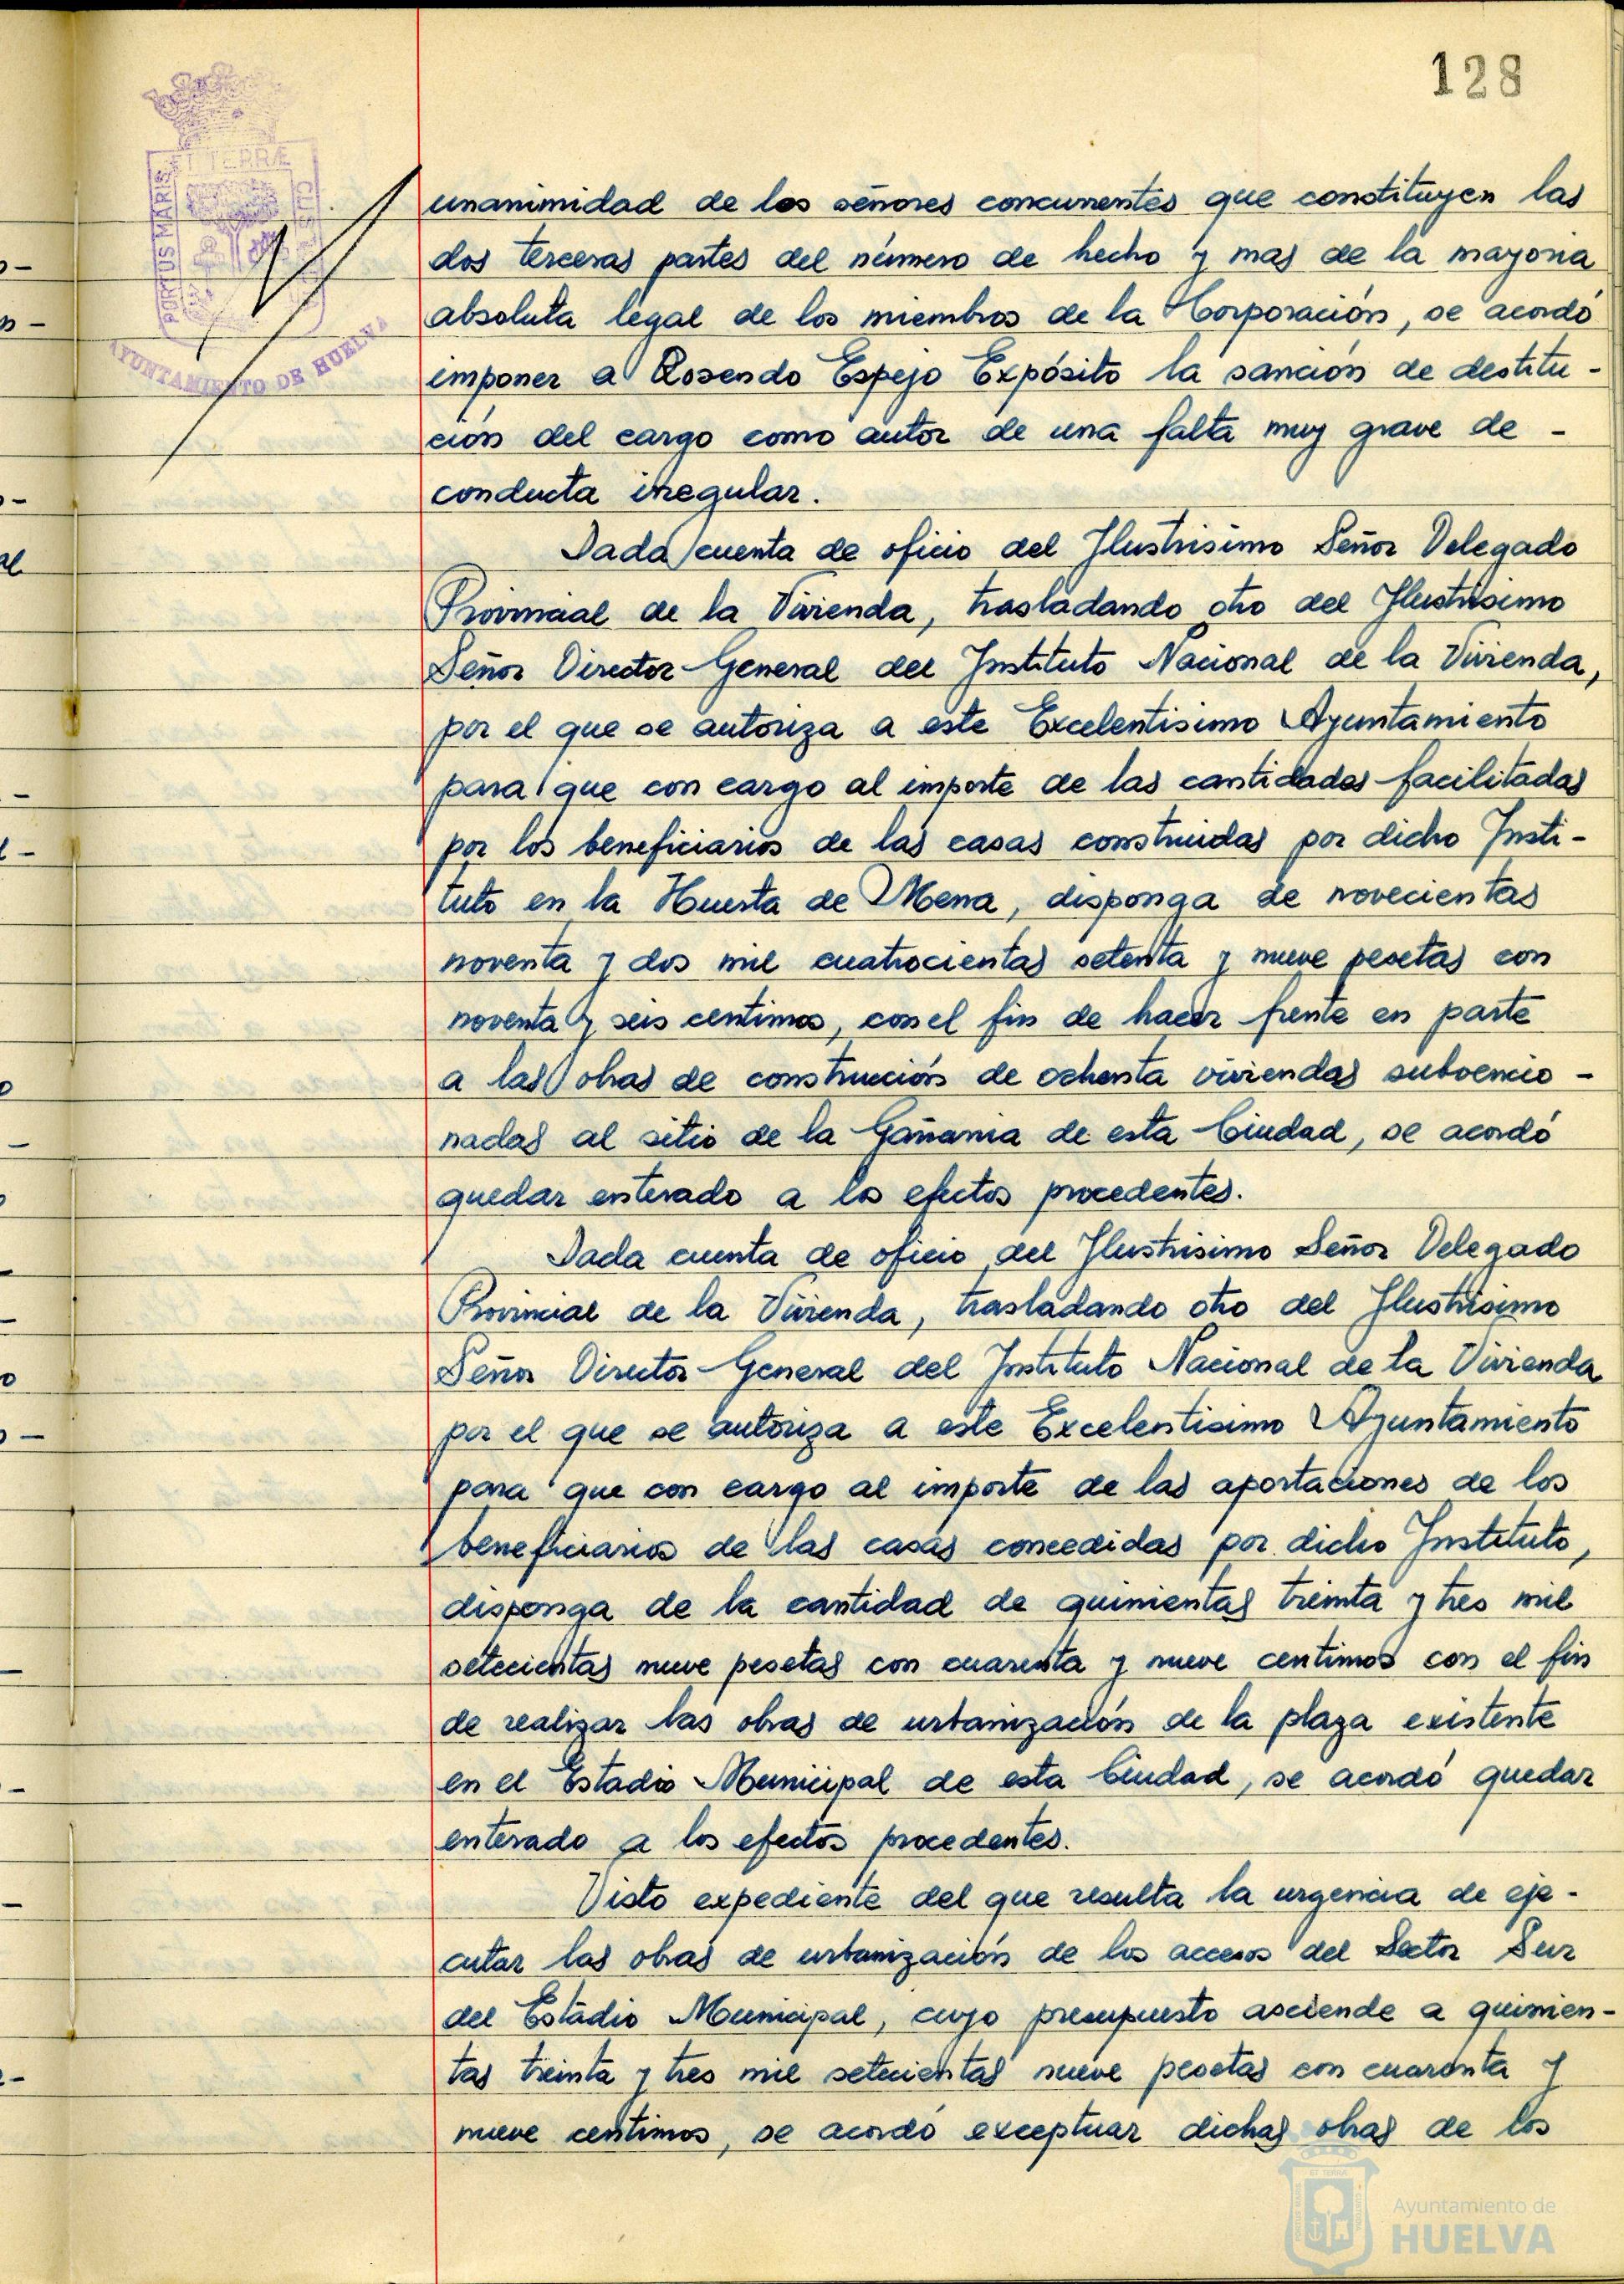 128
PORTUS MARIS ET TERRÆ CUSTODIA
AYUNTAMIENTO DE HUELVA
unanimidad de los señores concurrentes que constituyen las
dos terceras partes del número de hecho y mas de la mayoria
absoluta legal de los miembros de la Corporación, se acordó
imponer a Rosendo Espejo Expósito la sanción de destitu-
ción del cargo como autor de una falta muy grave de -
conducta irregular.
Dada cuenta de oficio del Ilustrisimo Señor Delegado
Provincial de la Vivienda, trasladando otro del Ilustrisimo
Señor Director General del Instituto Nacional de la Vivienda,
por el que se autoriza a este Excelentisimo Ayuntamiento
para que con cargo al importe de las cantidades facilitadas
por los beneficiarios de las casas construidas por dicho Insti-
tuto en la Huerta de Mena, disponga de novecientas
noventa y dos mil cuatrocientas setenta y nueve pesetas con
noventa y seis centimos, con el fin de hacer frente en parte
a las obras de construcción de ochenta viviendas subvencio-
nadas al sitio de la Gañania de esta Ciudad, se acordó
quedar enterado a los efectos procedentes.
Dada cuenta de oficio del Ilustrisimo Señor Delegado
Provincial de la Vivienda, trasladando otro del Ilustrisimo
Señor Director General del Instituto Nacional de la Vivienda
por el que se autoriza a este Excelentisimo Ayuntamiento
para que con cargo al importe de las aportaciones de los
beneficiarios de las casas concedidas por dicho Instituto,
disponga de la cantidad de quinientas treinta y tres mil
setecientas nueve pesetas con cuarenta y nueve centimos con el fin
de realizar las obras de urbanización de la plaza existente
en el Estadio Municipal de esta Ciudad, se acordó quedar
enterado a los efectos procedentes.
Visto expediente del que resulta la urgencia de eje-
cutar las obras de urbanización de los accesos del Sector Sur
del Estadio Municipal, cuyo presupuesto asciende a quinien-
tas treinta y tres mil setecientas nueve pesetas con cuarenta y
nueve centimos, se acordó exceptuar dichas obras de los
Ayuntamiento de
HUELVA